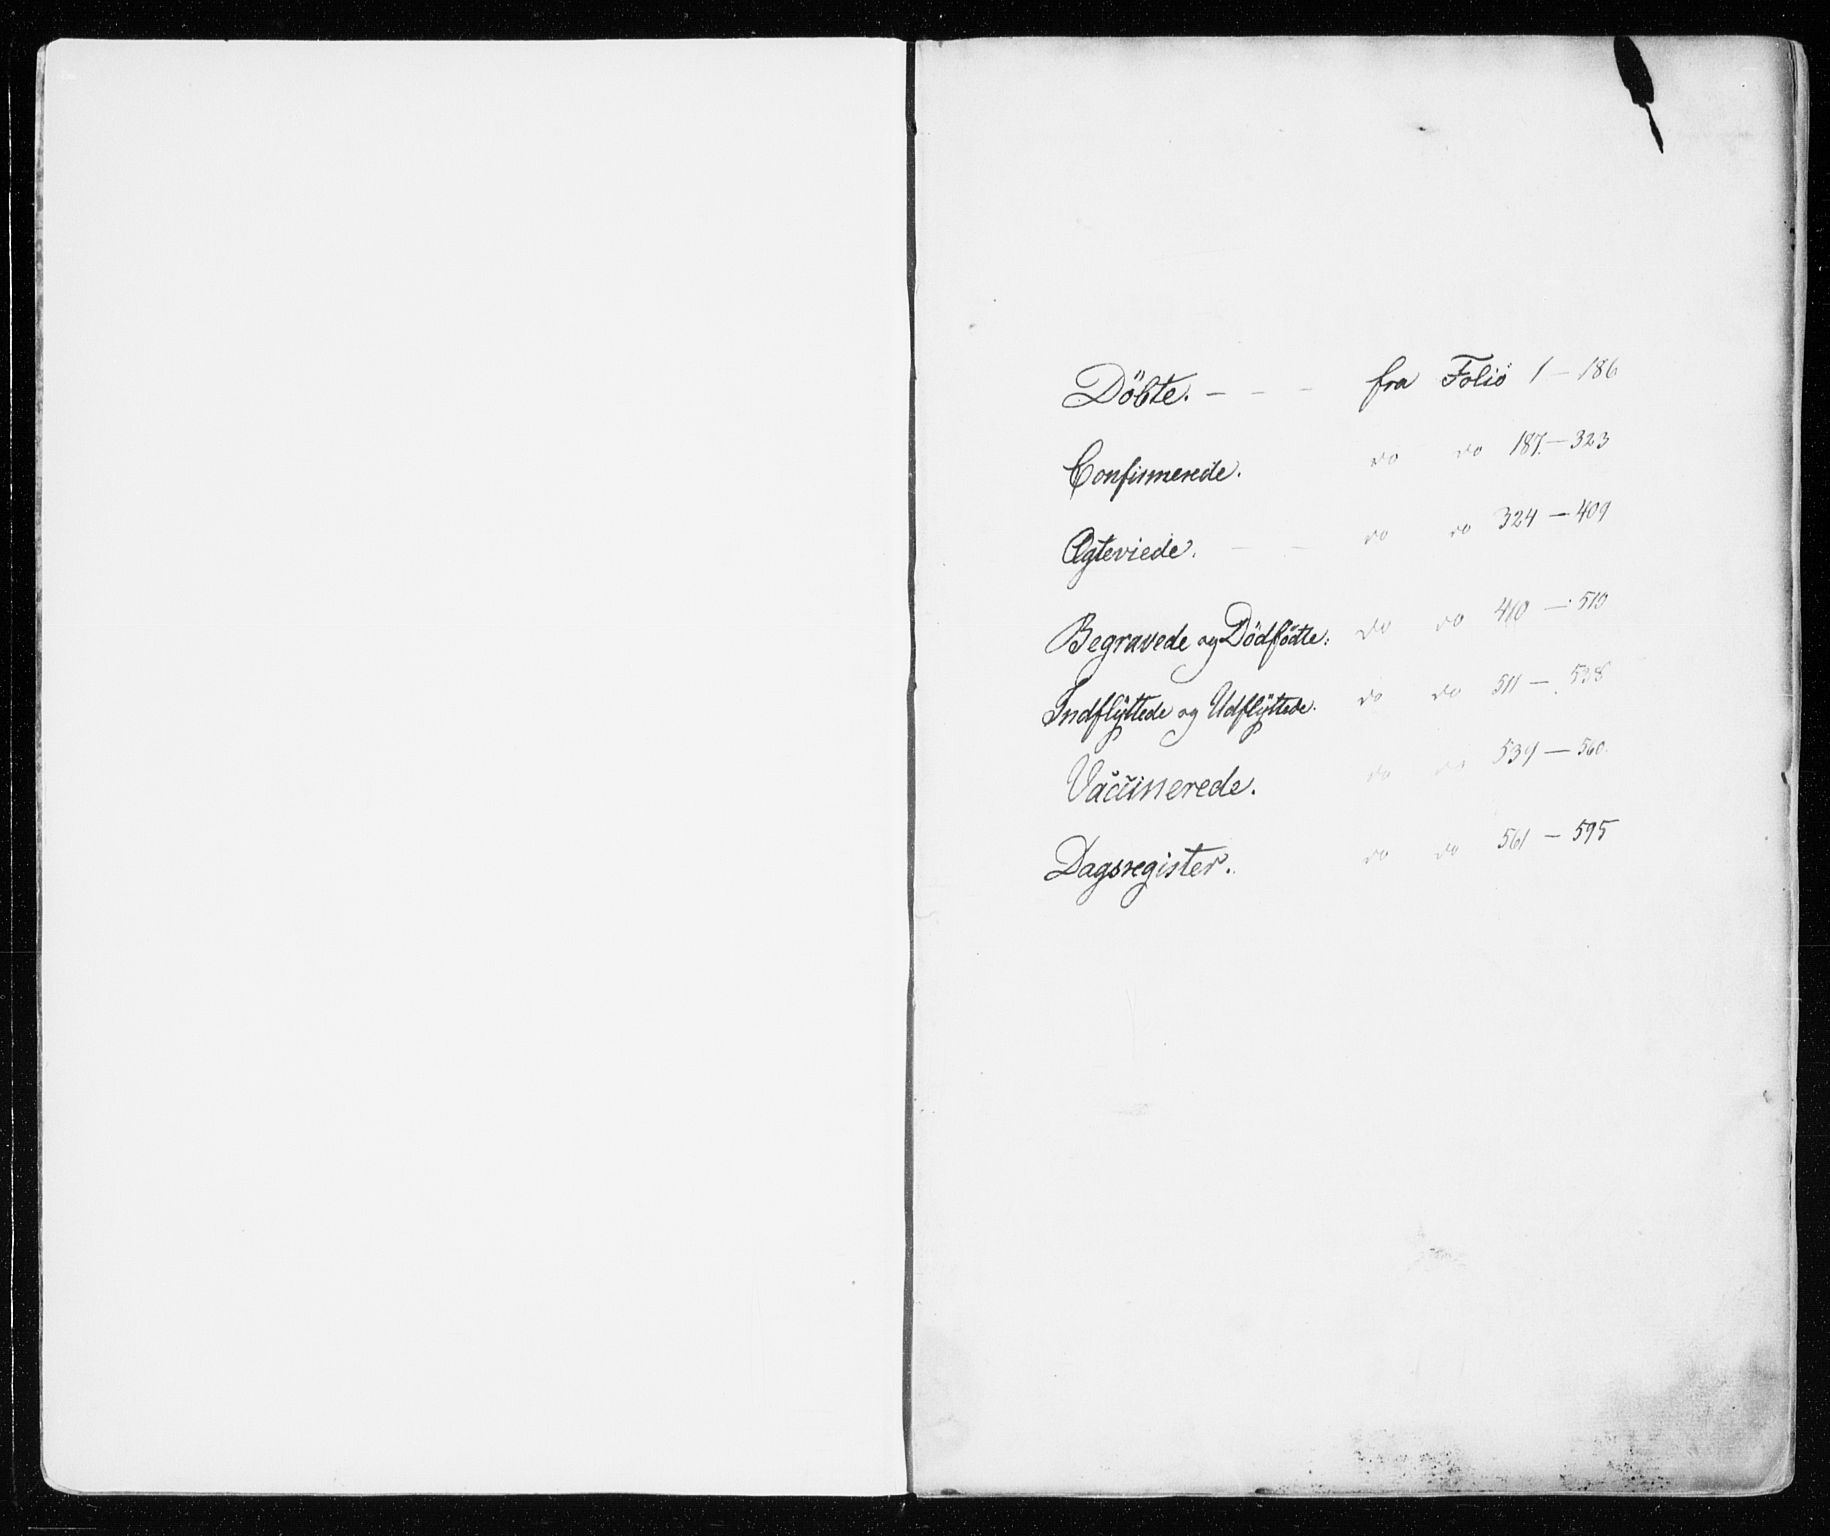 Döbte. - - - fra Folio 1 - 186
Confirmerede. do do 187. - 323
Ægteviede. - - do do 324 - 409
Begravede og Dödfödte: do do 410 - 510
Indflÿttede og Udflÿttede. do do 511 - 538
Vaccinerede. do do 539 - 560.
Dagsregister. do do 561 - 595